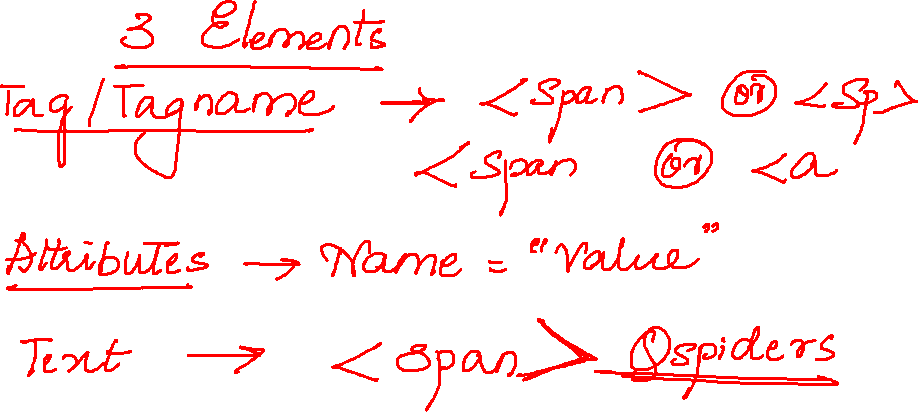 3 Elements
Tag/Tagname → <span> or <sp>
<span or <a
Attributes → Name = "Value"
Text → <span> Qspiders